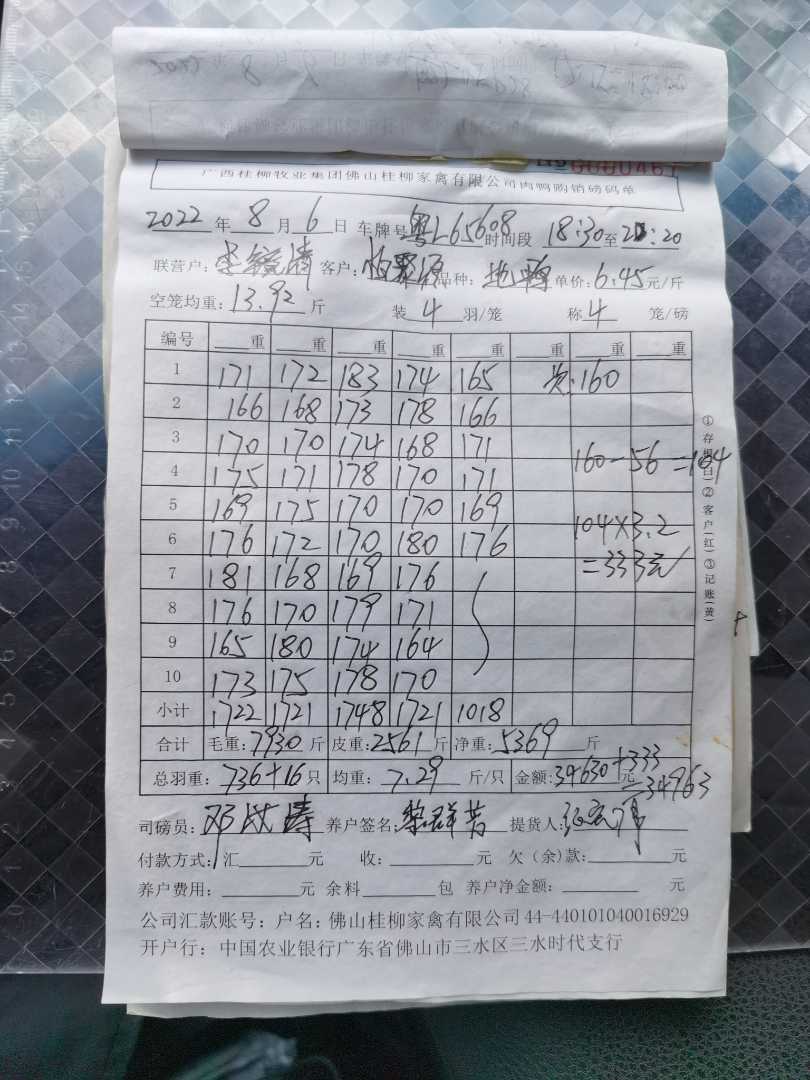 No 0000467
广西桂柳牧业集团佛山桂柳家禽有限公司肉鸭购销磅码单
2022 年 8 月 6 日 车牌号 粤L65608 时间段 18:30 至 21:20
联营户: 客户: 品种: 单价: 6.45 元/斤
空笼均重: 13.92 斤 装 4 羽/笼 称 4 笼/磅
编号 重 重 重 重 重 重 重 重
1 171 172 183 174 165 160
2 166 168 173 178 166
3 170 170 174 168 171 160-56=104
4 175 171 178 170 171
5 169 175 170 170 169
6 176 172 170 180 176 104×3.2
7 181 168 169 176 =333元
8 176 170 179 171
9 165 180 174 164
10 173 175 178 170
小计 1722 1721 1748 1721 1018
合计 毛重: 7930 斤 皮重: 2561 斤 净重: 5369 斤
总羽重: 736+16 只 均重: 7.29 斤/只 金额: 34630+333 元 =34963
司磅员: 养户签名: 黎群芳 提货人:
付款方式: 汇 元 收: 元 欠(余)款: 元
养户费用: 元 余料 包 养户净金额: 元
公司汇款账号: 户名: 佛山桂柳家禽有限公司 44-440101040016929
开户行: 中国农业银行广东省佛山市三水区三水时代支行
①存根(白)②客户(红)③记账(黄)